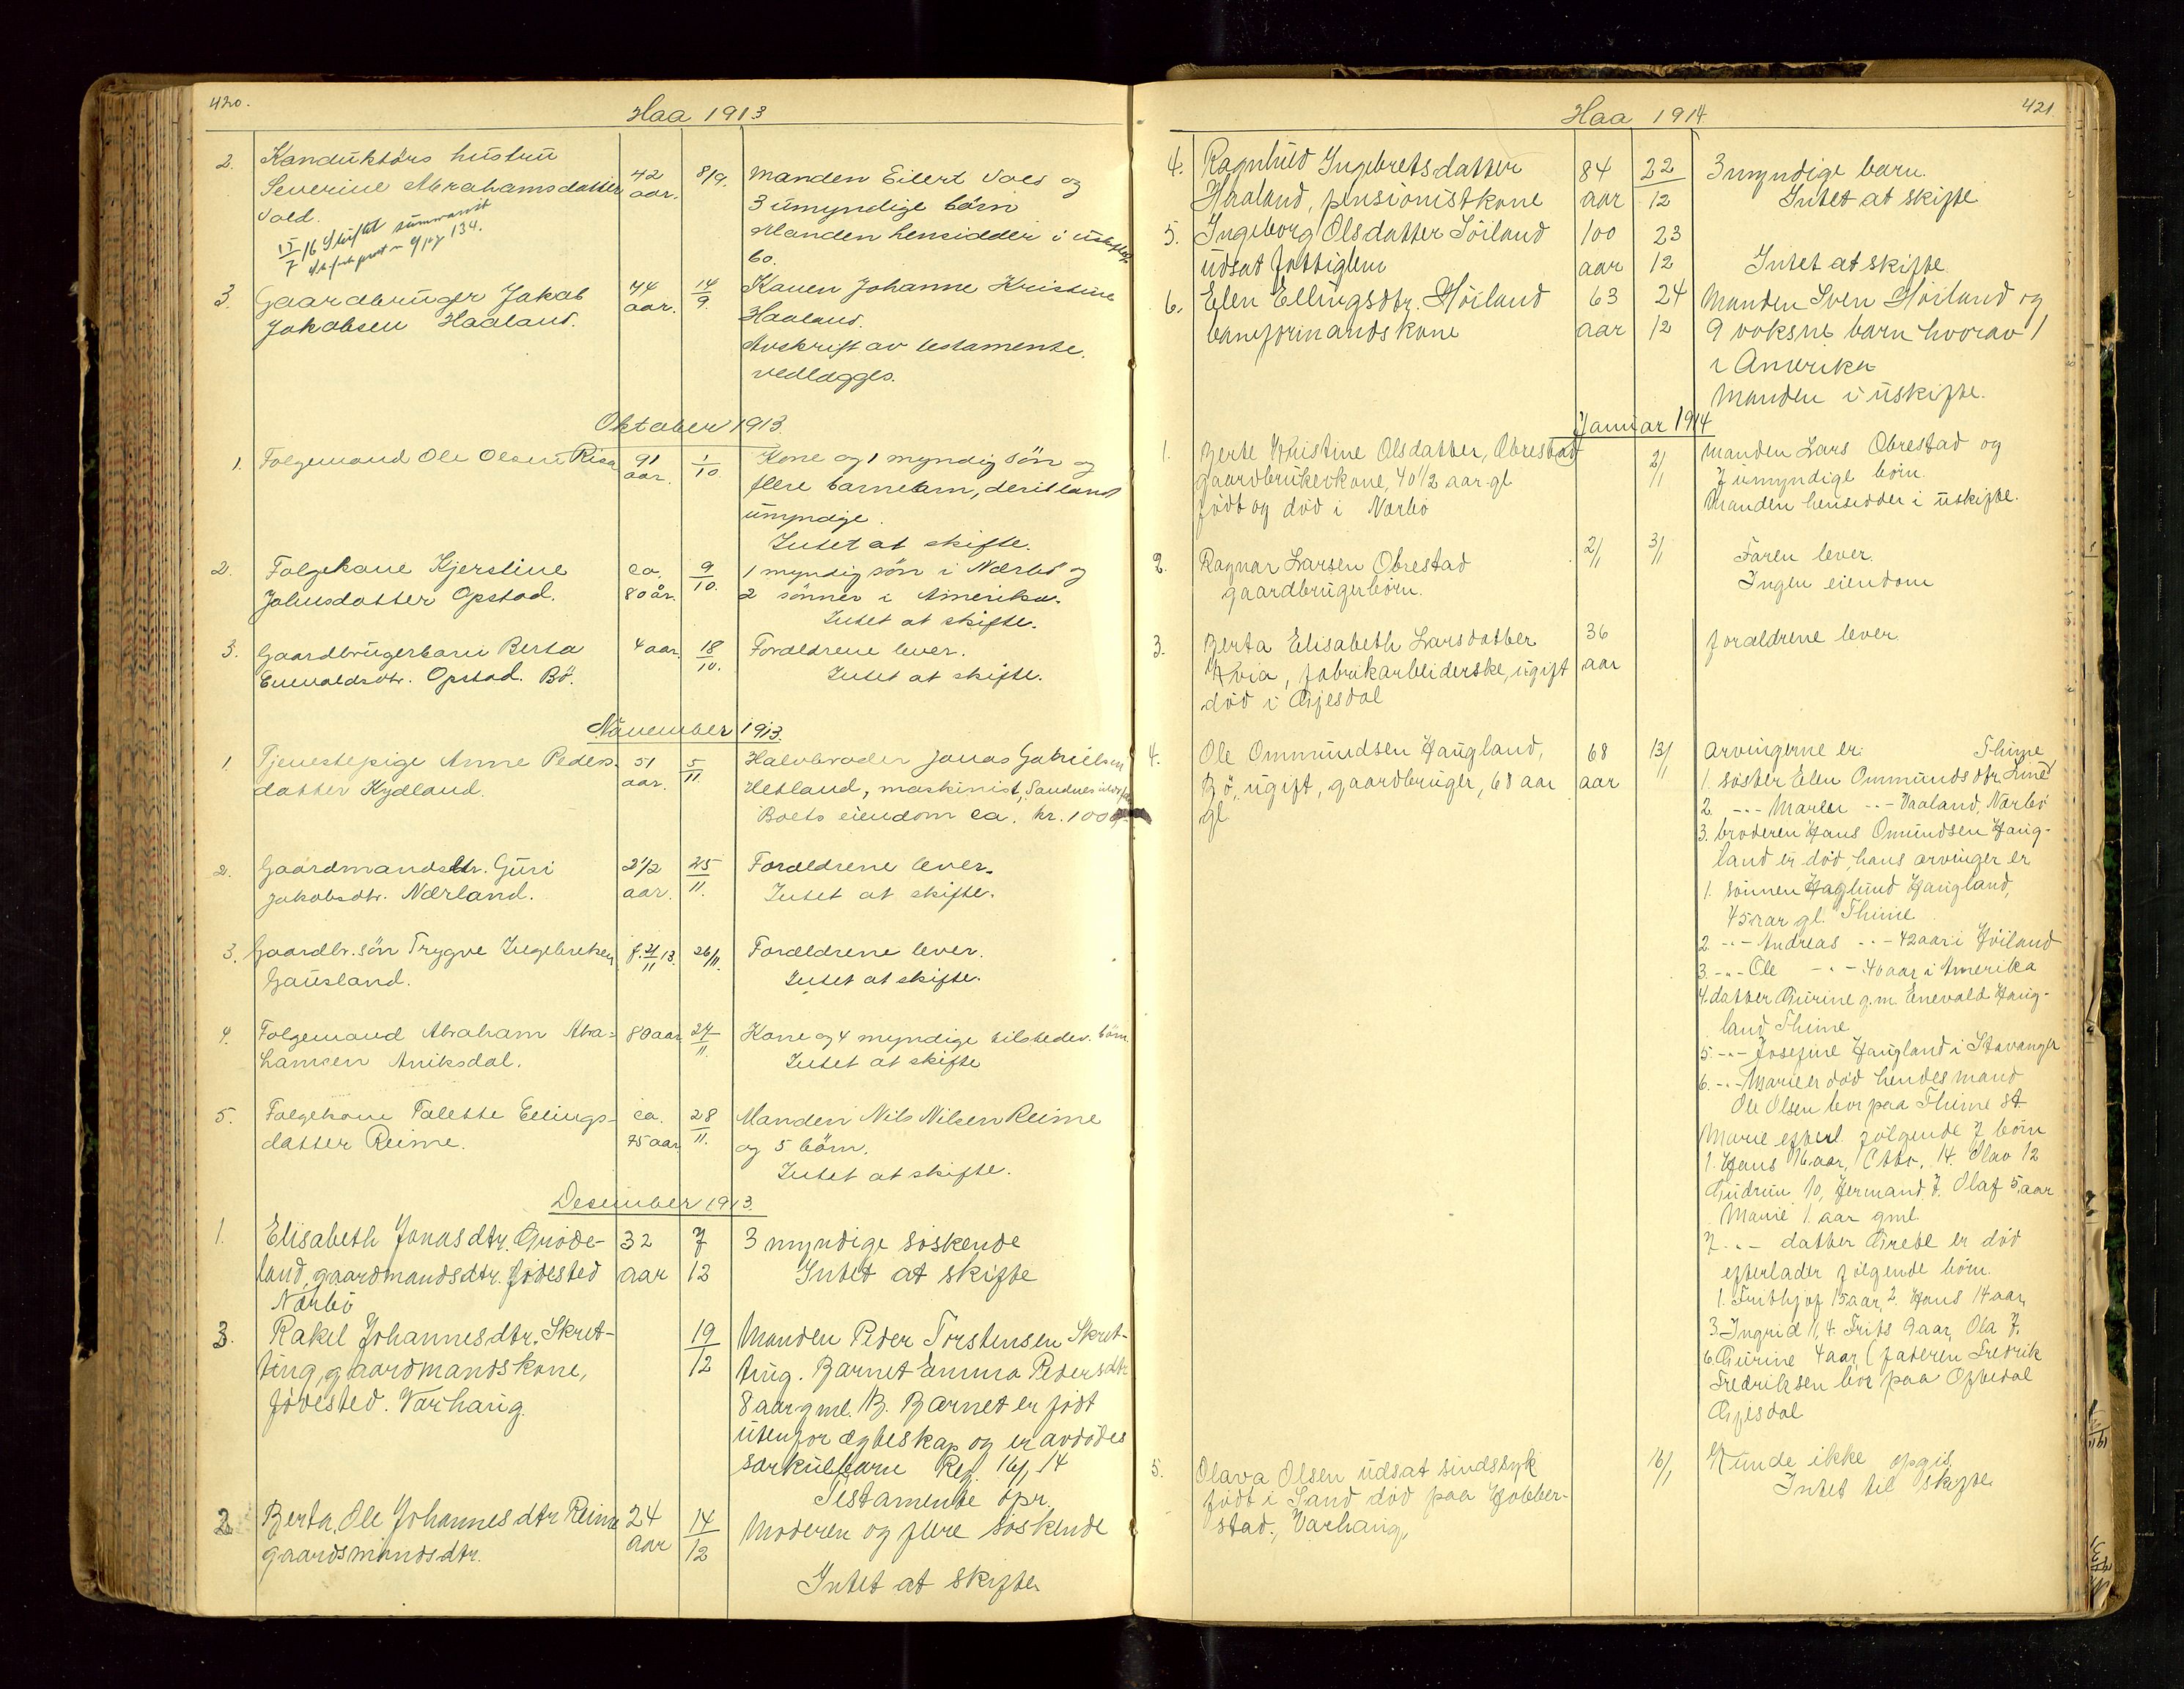 420.
Haa 1913
2. Kanduktörs hustru 42 8/9. Manden Eilert Vold og
Severine Abrahamsdatter aar. 3 umyndige börn
Vold. Manden hensidder i uskiftet
15/7 16 Skiftet summarisk
134.
bo.
3. Gaardbruger Jakob 44 14/9. Konen Johanne Kristine
Jakobsen Haaland. aar. Haaland.
Avskrift av testamente
vedlægges.
Oktober 1913.
1. Folgemand Ole Olsen Risa 91 1/10. Kone og 1 myndig sön og
aar. flere barnebarn, deriblandt
umyndige.
Intet at skifte.
2. Folgekone Kjerstine ca. 9/10. 1 myndig sön i Nærbö og
Johnsdatter Opstad. 80 år. 2 sönner i Amerika.
Intet at skifte.
3. Gaardbrugerbarn Berta 4 aar. 18/10. Forældrene lever.
Enevaldsdtr. Opstad. Bö. Intet at skifte.
November 1913.
1. Tjenestepige Anne Peders- 51 5/11. Halvbroder Jonas Gabrielsen
datter Kydland. aar. Hetland, maskinist, Sandnes
Boets eiendom ca. kr. 1000
2. Gaardmandsdtr. Guri 2 1/2 25/11. Forældrene lever.
Jakobsdtr. Nærland. aar. Intet at skifte.
3. Gaardbr. sön Trygve Ingebretsen f. 21/11 13. 26/11. Forældrene lever.
Gausland. Intet at skifte.
4. Folgemand Abraham Abra= 80 aar 27/11. Kone og 4 myndige tilstedev. börn.
hamsen Aniksdal. Intet at skifte
5. Folgekone Talette Ellings- ca. 28/11. Manden Nils Nilsen Reime
datter Reime. 75 aar og 5 börn.
Intet at skifte.
Desember 1913.
1. Elisabeth Jonasdtr. Gröde- 32 7/12 3 myndige söskende
land, gaardmandsdtr. födested aar Intet at skifte
Nærbö
3. Rakel Johannesdtr. Skret- 19/12 Manden Peder Torstensen Skret-
ting, gaardmandskone, ting. Barnet Emma Pedersdtr
födested. Varhaug. 8 aar gml. B. Barnet er födt
utenfor ægteskap og er avdödes
særkulbarn Reg. 16/1 14
Testamente opr.
2 Berta Ole Johannesdtr Reime 24 14/12 Moderen og flere söskende
gaardsmandsdtr. aar
Intet at skifte
421
Haa 1914
4. Ragnhild Ingebretsdatter 84 22/12 3 myndige barn.
Haaland, pensionistkone aar Intet at skifte
5. Ingeborg Olsdatter Söiland 100 23
udsat fattiglem aar 12 Intet at skifte
6. Elen Ellingsdtr. Höiland 63 24 Manden Sven Höiland og
baneformandskone aar 12 9 voksne barn hvorav 1
i Amerika
Manden i uskifte.
Januar 1914
1. Berte Kristine Olsdatter, Obrestad 2/1 Manden Lars Obrestad og
gaardbrukerkone, 40 1/2 aar gl 7 umyndige börn.
födt og död i Nærbö Manden hensidder i uskifte.
2. Ragnar Larsen Obrestad 2/1 3/1 Faren lever.
gaardbrugerbörn. Ingen eiendom
3. Berta Elisabeth Larsdatter 36 foraldrene lever
Kvia, fabrikarbeiderske, ugift aar
död i Gjesdal
4. Ole Ommundsen Haugland, 68 13/1 Arvingerne er Thime
Bö, ugift, gaardbruger, 68 aar aar 1. söster Elen Ommundsdtr. Line
gl. 2. -"- Maren -"- Vaaland, Nærbö
3. broderen Hans Omundsen Haug-
land er död, hans arvinger er
1. sönnen Haglund Haugland,
45 aar gl. Thime
2. -"- Andreas -"- 42 aar i Höiland
3. -"- Ole -"- 40 aar i Amerika
4. datter Gurine g.m. Enevald Haug-
land Thime
5. -"- Josefine Haugland i Stavanger
6. -"- Marie er död hendes mand
Ole Olsen bor paa Thime st
Marie efterl. fölgende 7 börn
1. Hans 16 aar, Otto. 14. Olav 12
Gudrun 10, Hermand 7. Olaf 5 aar
Marie 1 aar gml.
7. -"- datter Grete er död
efterlader fölgende börn.
1. Frithjof 15 aar, 2. Hans 14 aar,
3. Ingrid 11, 4. Frits 9 aar, Ola 7.
6. Gurine 4 aar (faderen Fredrik
Fredriksen bor paa Opbedal
Gjesdal
5. Olava Olsen udsat sindssyk 16/1 Kunde ikke opgis.
födt i Sand död paa Hobber- Intet til skifte
stad, Varhaug,